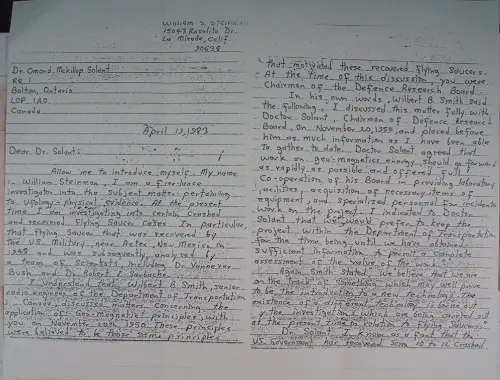 William S. Steinman
15043 Rosalita Dr.
La Mirada, Calif.
90638
Dr. Omond McKillop Solant
RR 1
Bolton, Ontario
LOP 1AO
Canada
April 19, 1983
Dear Dr. Solant:
Allow me to introduce myself. My name
is William Steinman, I am a free-lance
investigator into the Subject matter pertaining
to Ufology-physical evidence. At the present
time I am investigating into certain Crashed
and recovered Flying Saucer Cases. In particular,
that Flying Saucer that was recovered by
the U.S. Military, near Aztec, New Mexico in
1948 and was subsequently analyzed by
a team of Scientists, including Dr. Vannevar
Bush, and Dr. Robert I. Sarbacher.
I understand that Wilbert B. Smith, senior
radio engineer of the Department of Transportation
, Canada, discussed the matter concerning the
application of Geo-Magnetic principles, with
you on November 20th, 1950. These principles
were believed to be those same principles
that motivated these recovered flying saucers.
At the time of this discussion, you were
Chairman of the Defence Research Board.
In his own words, Wilbert B. Smith said
the following, I discussed this matter fully with
Doctor Solant, Chairman of Defence Research
Board, on November 20, 1950, and placed before
him as much information as I have been able
to gather to date. Doctor Solant agreed that
work on geo-magnetics energy should go forward
as rapidly as possible and offered full
Co-operation of his Board in providing laboratory
facilities, acquisition of necessary items of
equipment, and specialized personnel for incidental
work on the project. I indicated to Doctor
Solant that we would prefer to keep the
project within the Department of Transportation
for the time being until we have obtained
sufficient information to permit a complete
assessment of the value of the work.
Again, Smith stated, we believe that we are
on the track of something which may well prove
to be the introduction to a new technology. The
existence of a different technology is borne out
by the investigations which are being carried out
at the present time in relation to flying saucers.
Dr. Solant, I know as a fact that the
US. Government has recovered some 10 to 12 Crashed